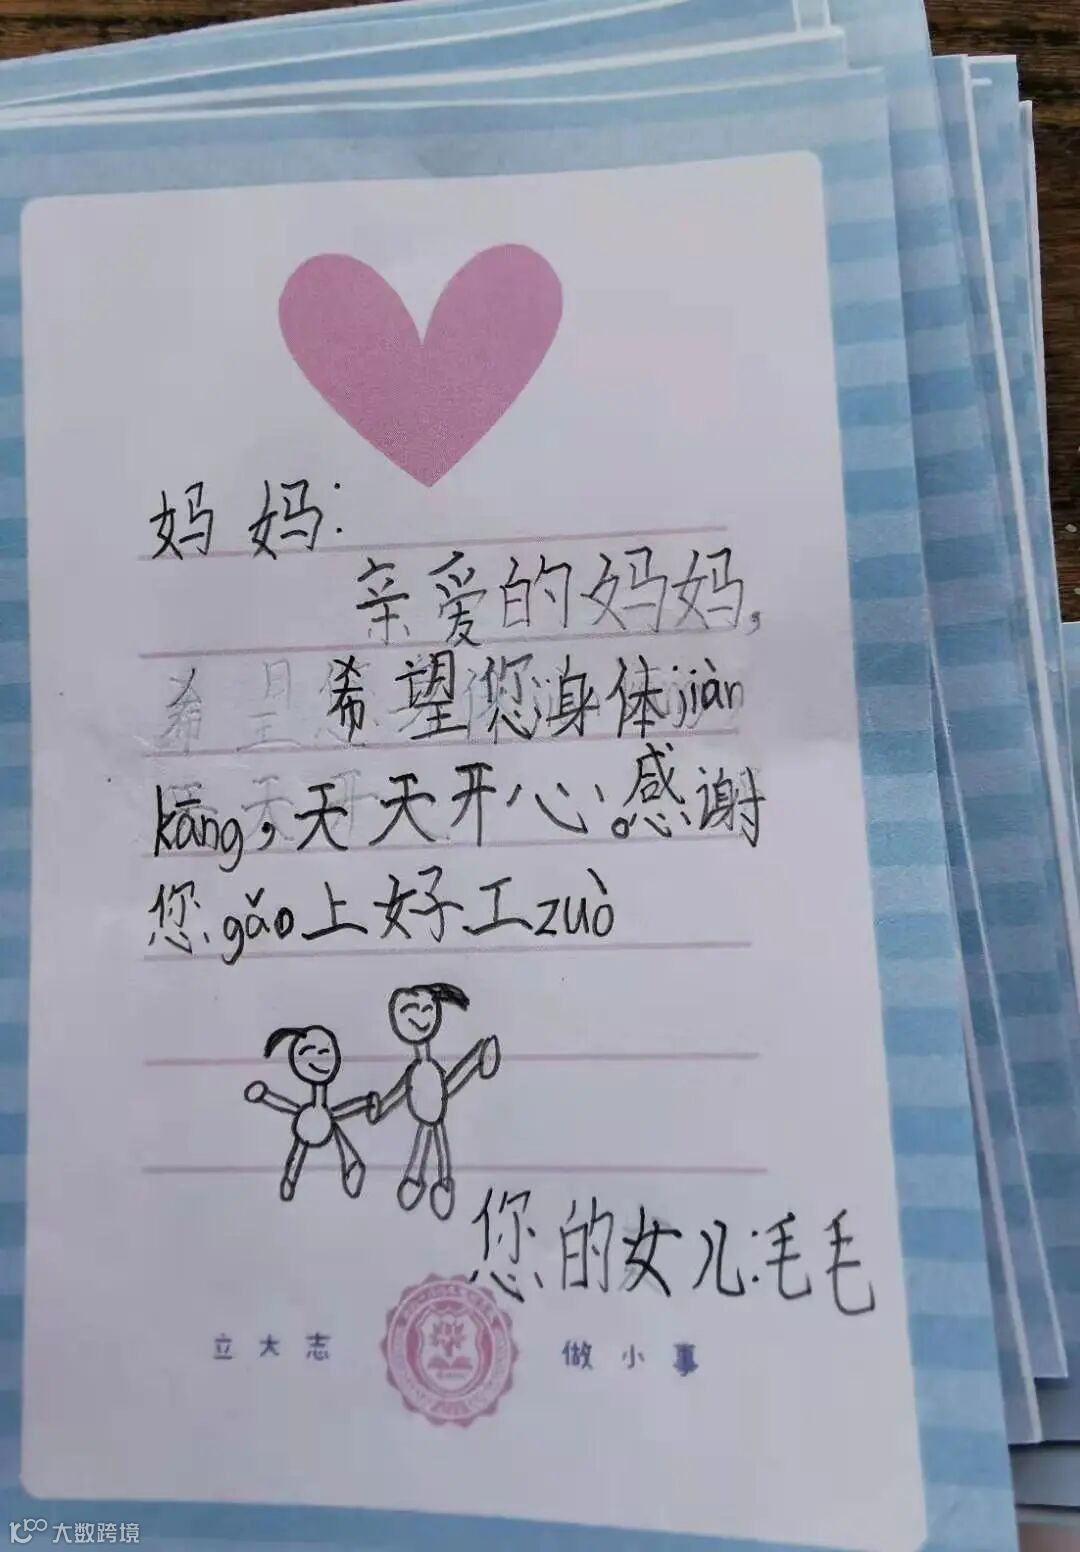 妈妈:
亲爱的妈妈,
希望您身体jiàn
kāng,天天开心。感谢
您gǎo上好工zuò
您的女儿:毛毛
立大志 做小事
大数跨境